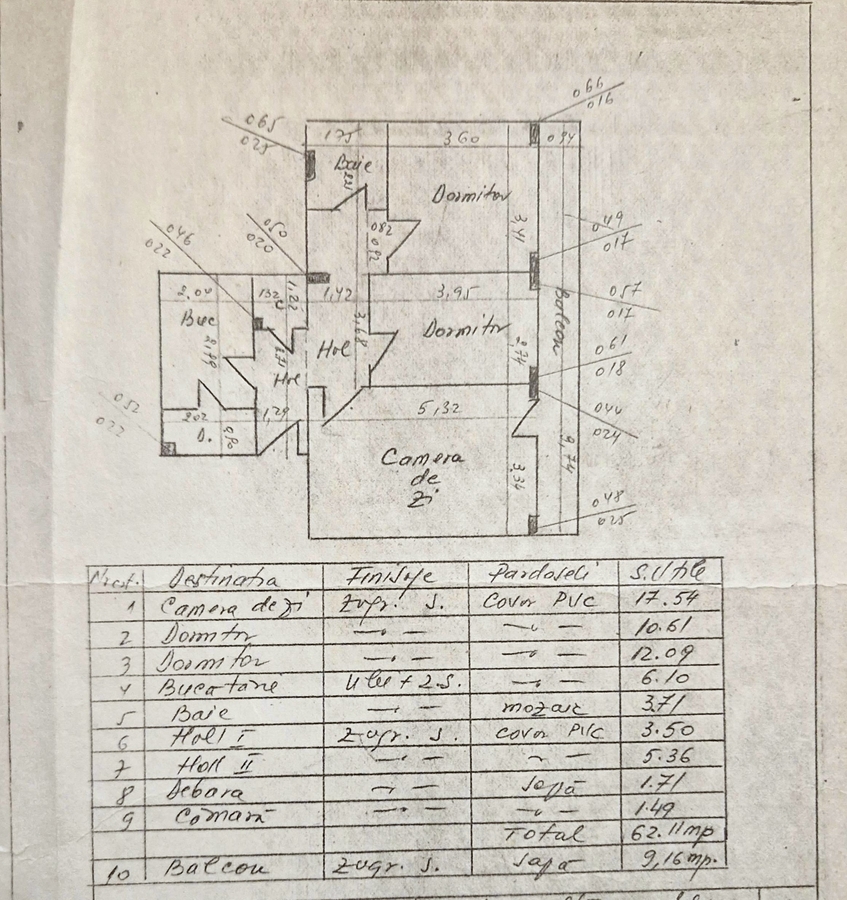 066
016
065
025
175
3,60
0 94
Baie
221
Dormitor
046
022
050
020
082
0,92
3,41
049
017
2,04
132
C
1,22
1,42
3,95
057
017
Buc
2,99
Hol
3,68
Hol
Dormitor
2,74
Balcon
061
018
052
022
202
0,90
D.
1,29
5,32
044
024
Camera
de
Zi
3,34
9,74
048
025
Nr.crt. Destinatia Finisaje Pardoseli S.Utile
1 Camera de zi Zugr. S. Covor PVC 17.54
2 Dormitor —"— —"— 10.61
3 Dormitor —"— —"— 12.09
4 Bucatarie Ulei + Z.S. —"— 6.10
5 Baie —"— mozaic 3.71
6 Holl I Zugr. S. Covor PVC 3.50
7 Holl II —"— —"— 5.36
8 Debara —"— Sapă 1.71
9 Cămară —"— —"— 1.49
Total 62.11mp
10 Balcon Zugr. S. Sapă 9,16mp.